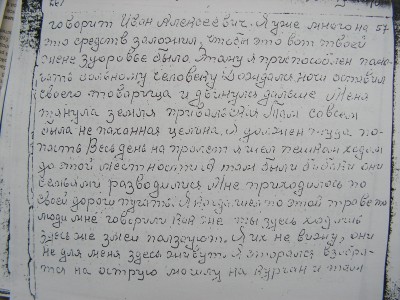 говорит Иван Алексеевич. Я уже много на 57
это средств заложил, чтобы это вот твоей
жене здоровье было. Этому я приспособлен помо-
гать больному человеку Дождался ночи оставил
своего товарища и двинулся дальше Меня
тянула земля Там совсем
была не паханная целина, Я должен туда по-
пасть Весь день на пролет я шел пешком ходом
до этой местности А там были они
разводились Мне приходилось по
своей дороги пугать. А когда шел по этой траве то
люди мне говорили Вон же ты здесь ходишь
здесь же змеи ползают. Я их не вижу, они
не для меня здесь живут. Я старался взобра-
тся на острую могилу на Курган и там